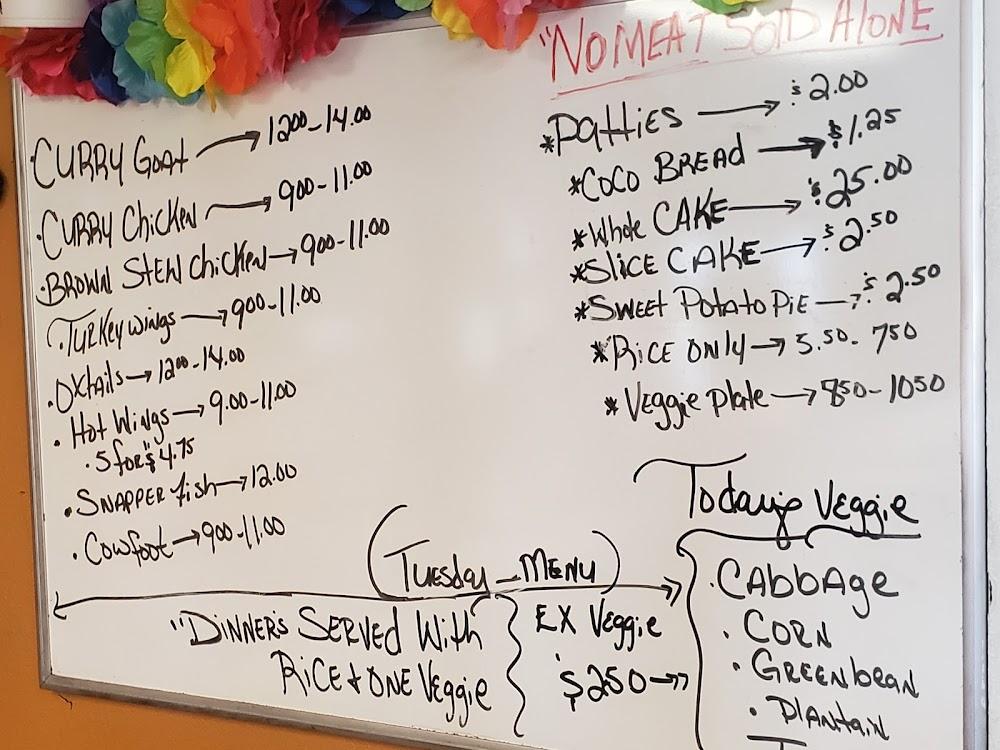 "NO MEAT SOLD ALONE
• CURRY Goat → 12⁰⁰-14.00
• CURRY Chicken → 900-11.00
• BROWN STEW Chicken → 900-11.00
• TURKEY wings → 900-11.00
• OXtails → 12⁰⁰-14.00
• Hot Wings → 9.00-11.00
• 5 for $4.75
• SNAPPER fish → 12.00
• Cowfoot → 900-11.00
*Patties → $2.00
*COCO BREAD → $1.25
*Whole CAKE → $25.00
*Slice CAKE → $2.50
*SWEET POTATO PIE → $2.50
*RICE ONLY → 5.50-750
*Veggie Plate → 850-1050
(Tuesday - MENU)
"DINNERS SERVED With
RICE & ONE Veggie
EX Veggie
$250 →
Today's Veggie
• CAbbAge
• CORN
• GREENbean
• PlANtAiN